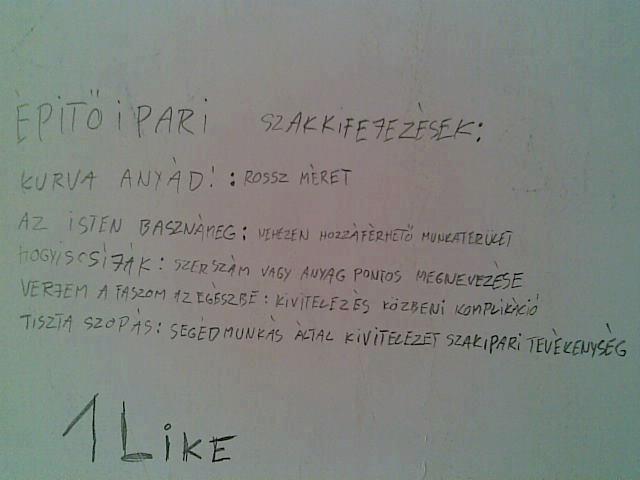 ÈPITŐIPARI SZAKKIFEJEZÈSEK:
KURVA ANYÀD! : ROSSZ MÈRET
AZ ISTEN BASZNÀMEG: NEHEZEN HOZZÀFÈRHETŐ MUNKATERÜLET
HOGYISCSÌJÀK: SZERSZÀM VAGY ANYAG PONTOS MEGNEVEZÈSE
VERJEM A FASZOM AZ EGÈSZBE: KIVITELEZÈS KÖZBENI KOMPLIKÀCIÓ
TISZTA SZOPÀS: SEGÈDMUNKÀS ÀLTAL KIVITELEZET SZAKIPARI TEVÈKENYSÈG
1 LiKE